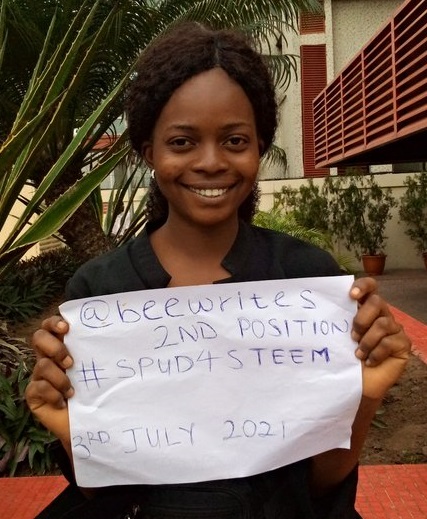 @beewrites
2ND POSITION
#SPUD4STEEM
3RD JULY 2021